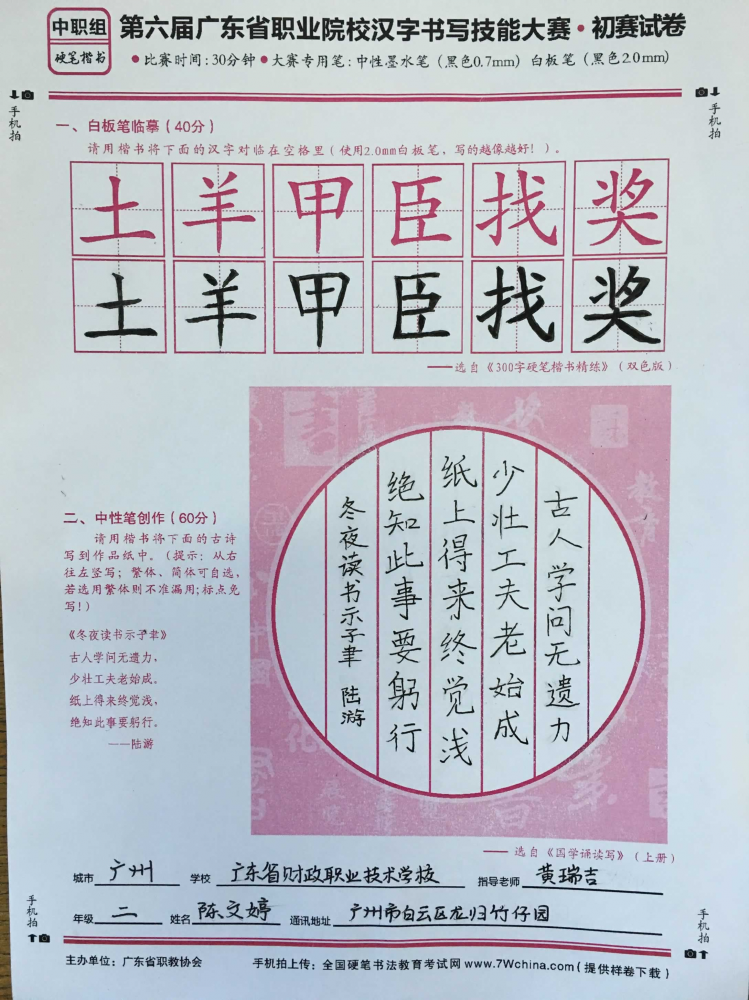 中职组
硬笔楷书
第六届广东省职业院校汉字书写技能大赛·初赛试卷
●比赛时间:30分钟●大赛专用笔:中性墨水笔(黑色0.7mm) 白板笔(黑色2.0mm)
手机拍
手机拍
一、白板笔临摹(40分)
请用楷书将下面的汉字对临在空格里(使用2.0mm白板笔,写的越像越好!)。
土羊甲臣找奖
土羊甲臣找奖
——选自《300字硬笔楷书精练》(双色版)
二、中性笔创作(60分)
请用楷书将下面的古诗
写到作品纸中。(提示:从右
往左竖写;繁体、简体可自选,
若选用繁体则不准漏用;标点免
写!)
《冬夜读书示子聿》
古人学问无遗力,
少壮工夫老始成。
纸上得来终觉浅,
绝知此事要躬行。
——陆游
古人学问无遗力
少壮工夫老始成
纸上得来终觉浅
绝知此事要躬行
冬夜读书示子聿 陆游
——选自《国学诵读写》(上册)
城市 广州 学校 广东省财政职业技术学校 指导老师 黄瑞吉
年级 二 姓名 陈文婷 通讯地址 广州市白云区龙归竹仔园
手机拍
手机拍
主办单位:广东省职教协会 手机拍上传:全国硬笔书法教育考试网 www.7Wchina.com(提供样卷下载)